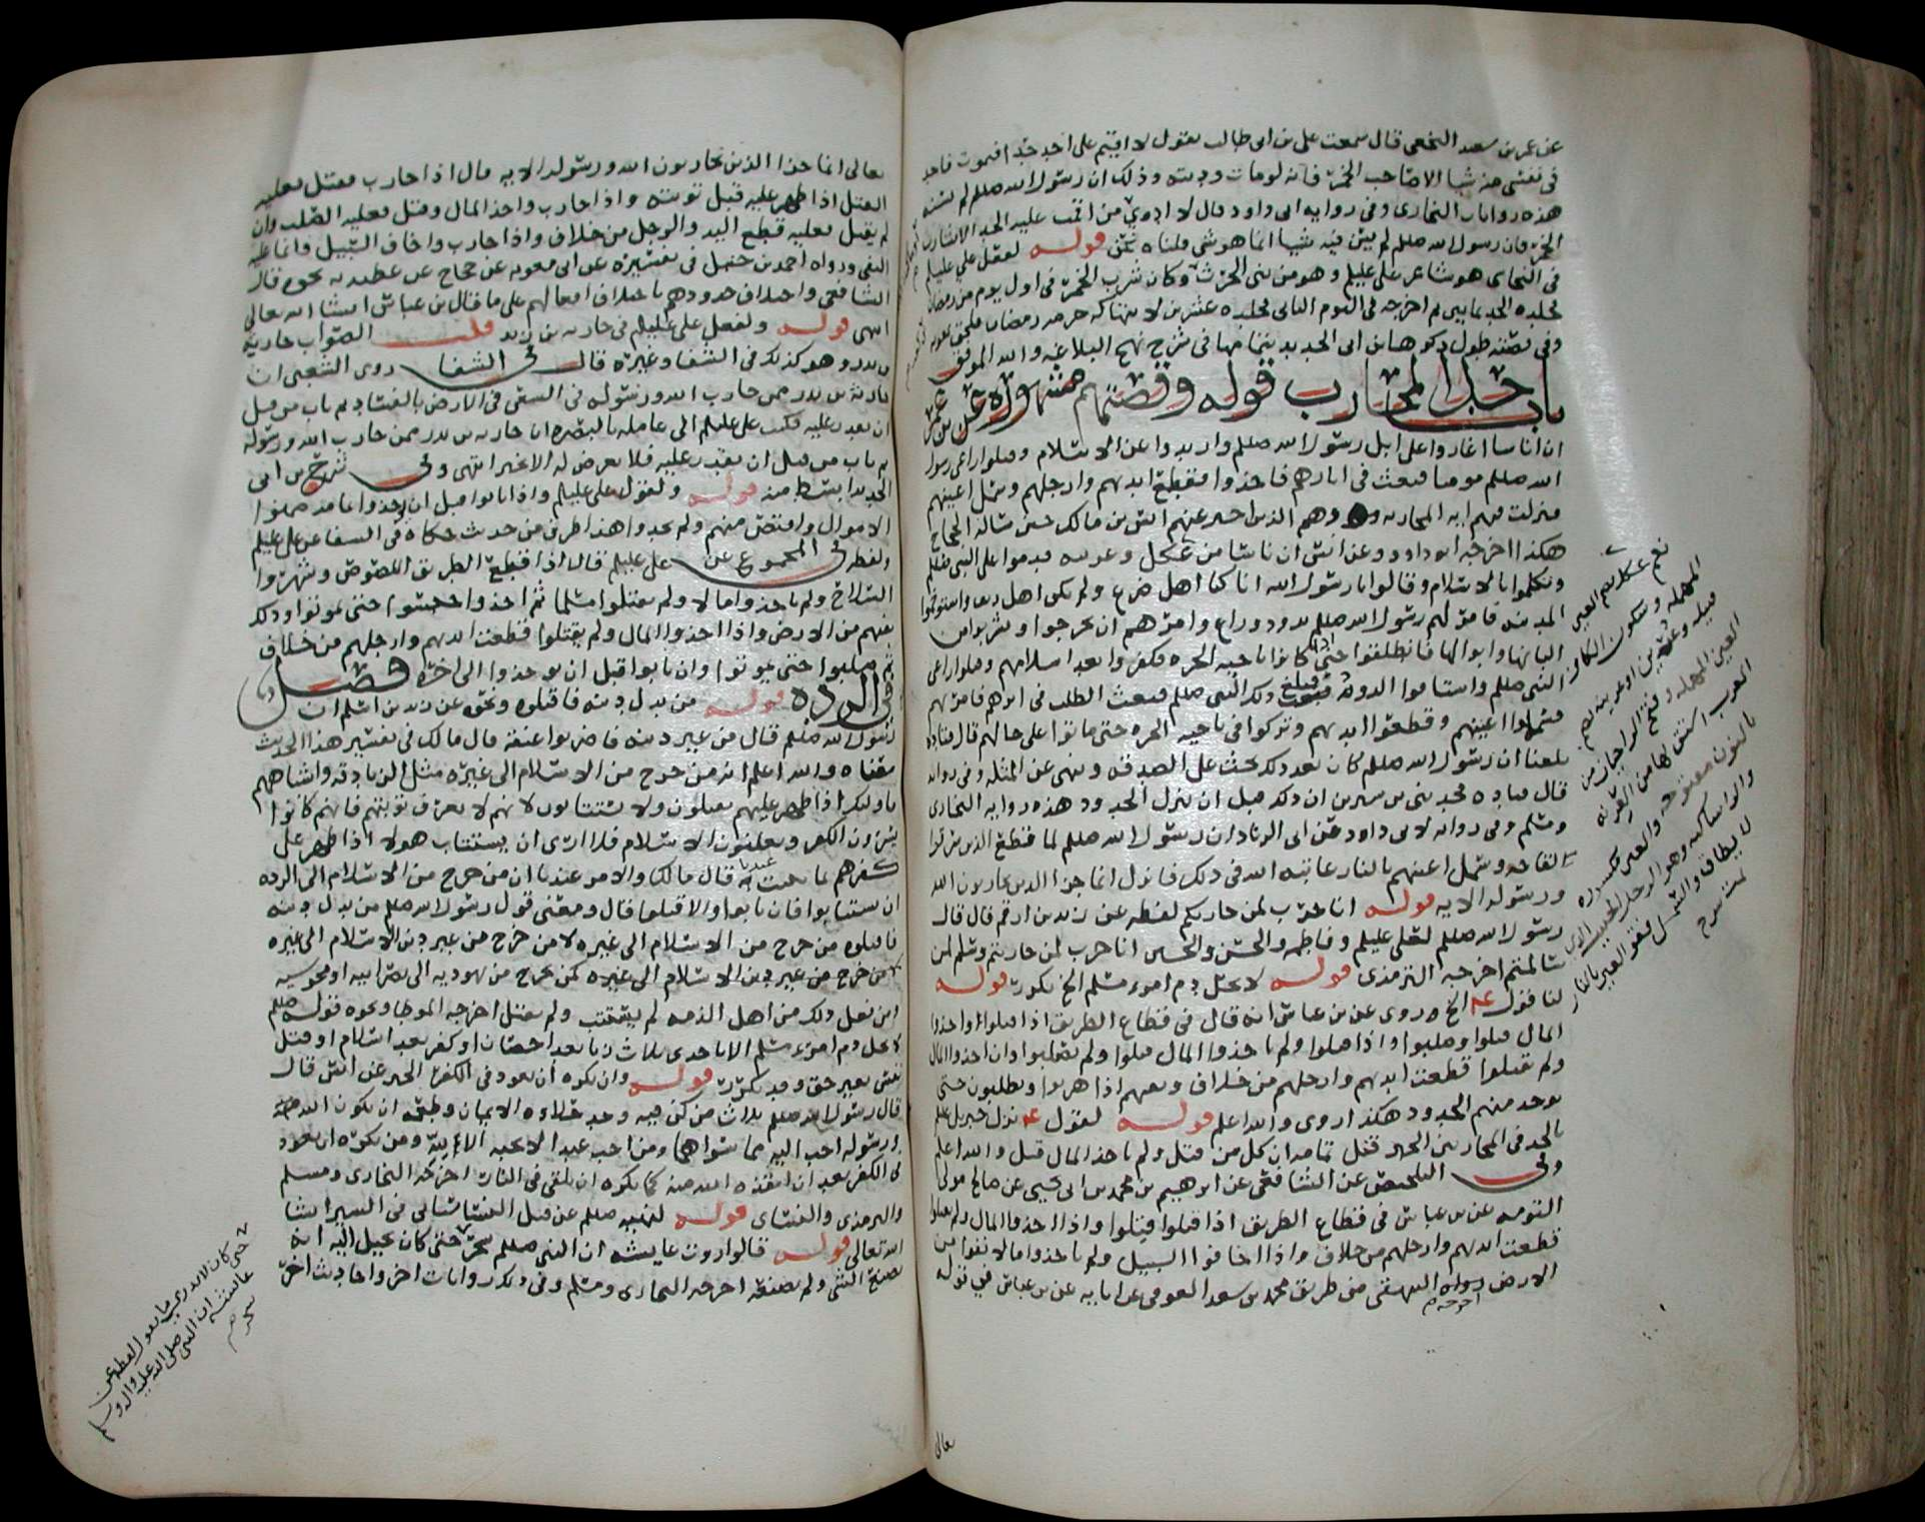 عن عمر بن سعد النخعي قال سمعت علي بن ابي طالب يقول لا اقيم على احد حدا فيموت فاجد
في نفسي منه شيا الا صاحب الخمر فانه لومات وديته وذلك ان رسول الله صللم لم يسنه
هذه روايات البخاري وفي روايه ابي داود قال لا ادي من اقمت عليه الحد الا شارب
الخمر فان رسول الله صللم لم يسن فيه شيا انما هو شي قلناه نحن قوله لفعل علي عليلم
في النجاشي هو شاعر علي عليلم وهو من بني الحرث وكان شرب الخمر في اول يوم من رمضان
فجلده الحد ثمانين ثم اخرجه في اليوم الثاني فجلده عشرين لانتهاكه حرمه رمضان فلحق بمعويه
وفي قصته طول ذكرها ابن ابي الحديد بتمامها في شرح نهج البلاغه والله الموفق
باب حد المحارب قوله وقصتهم مشهوره عن بن عمر
ان اناسا اغاروا على ابل رسول الله صللم وارتدوا عن الاسلام وقتلوا راعي رسول
الله صللم مومنا فبعث في اثارهم فاخذوا فقطع ايديهم وارجلهم وسمل اعينهم
فنزلت فيهم ايه المحاربه وهم الذين اخبر عنهم انس بن مالك حين ساله الحجاج
هكذا اخرجه ابو داود وعن انس ان ناسا من عكل وعرينه قدموا على النبي صللم
وتكلموا بالاسلام وقالوا يا رسول الله انا كنا اهل ضرع ولم نكن اهل ريف واستوخموا
المدينه فامر لهم رسول الله صللم بذود وراع وامرهم ان يخرجوا ويشربوا من
البانها وابوالها فانطلقوا حتى اذا كانوا ناحيه الحره فكفروا بعد اسلامهم وقتلوا راعي
النبي صللم واستاقوا الذود فبلغ ذلك النبي صللم فبعث الطلب في اثرهم فامر بهم
فسملوا اعينهم وقطعوا ايديهم وتركوا في ناحيه الحره حتى ماتوا على حالهم قال قتاده
بلغنا ان رسول الله صللم كان بعد ذلك يحث على الصدقه وينهى عن المثله وفي روايه
قال قتاده فحدثني بن سيرين ان ذلك قبل ان تنزل الحدود هذه روايه البخاري
ومسلم وفي روايه لابي داود عن ابي الزناد ان رسول الله صللم لما قطع الذين سرقوا
لقاحه وسمل اعينهم بالنار عاتبه الله في ذلك فانزل انما جزا الذين يحاربون الله
ورسوله الايه قوله انا حرب لمن حاربكم لفظه عن زيد بن ارقم قال قال
رسول الله صللم لعلي عليلم وفاطمه والحسن والحسين انا حرب لمن حاربتم وسلم لمن
سالمتم اخرجه الترمذي قوله لا يحل دم امرء مسلم الخ تكررت قوله
لنا قول ع الخ روي عن بن عباس انه قال في قطاع الطريق اذا قتلوا واخذوا
المال قتلوا وصلبوا واذا قتلوا ولم ياخذوا المال قتلوا ولم يصلبوا وان اخذوا المال
ولم يقتلوا قطعت ايديهم وارجلهم من خلاف ونفيهم اذا هربوا ويطلبون حتى
يوخذ منهم الحدود هكذا روي والله اعلم قوله لقول ع نزل جبريل علم
بالحد في المحاربين الخبر قتل تمامه ان كل من قتل ولم ياخذ المال قتل والله اعلم
وفي التلخيص عن الشافعي عن ابرهيم بن محمد بن ابي يحيى عن صالح مولى
التومه عن بن عباس في قطاع الطريق اذا قتلوا قتلوا واذا اخذوا المال ولم يقتلوا
قطعت ايديهم وارجلهم من خلاف واذا اخافوا السبيل ولم ياخذوا مالا نفوا من
الارض رواه البيهقي من طريق محمد بن سعد العوفي عن ابايه عن بن عباس في قوله
اخرجه
تعالى
نعم عكل بضم العين
المهمله وسكون الكاف
قبيله وعرينه بضم
العين المهمله وفتح الرا حيان من
العرب
تعالى انما جزا الذين يحاربون الله ورسوله الايه قال اذا حارب فقتل فعليه
القتل اذا ظهر عليه قبل توبته واذا حارب واخذ المال وقتل فعليه الصلب وان
لم يقتل فعليه قطع اليد والرجل من خلاف واذا حارب واخاف السبيل وانما عليه
النفي ورواه احمد بن حنبل في تفسيره عن ابي معويه عن حجاج عن عطيه به نحوه قال
الشافعي واختلاف حدودهم باختلاف افعالهم على ما قال بن عباس انشا الله تعالى
انتهى قوله ولفعل علي عليلم في حاربه بن زيد قلت الصواب حارثه
بن بدر وهو كذلك في الشفا وغيره قال في الشفا روى الشعبي ان
حارثه بن بدر ممن حارب الله ورسوله في السعي في الارض بالفساد ثم تاب من قبل
ان يقدر عليه فكتب علي عليلم الى عامله بالبصره ان حارثه بن بدر ممن حارب الله ورسوله
ثم تاب من قبل ان يقدر عليه فلا يعرض له الا بخير انتهى وفي شرح بن ابي
الحديد ابسط منه قوله ولقول علي عليلم واذا تابوا قبل ان يوخذوا
الاموال واقتص منهم ولم يحدوا هذا طرف من حديث حكاه في الشفا عن علي عليلم
ولفظه في المجموع عن علي عليلم قال اذا قطع الطريق اللصوص وشهروا
السلاح ولم ياخذوا مالا ولم يقتلوا مسلما ثم اخذوا حبسوا حتى يموتوا وذلك
نفيهم من الارض واذا اخذوا المال ولم يقتلوا قطعت ايديهم وارجلهم من خلاف
ثم صلبوا حتى يموتوا وان تابوا قبل ان يوخذوا الى اخره فصل
في الرده قوله من بدل دينه فاقتلوه ونحوه عن زيد بن اسلم ان
رسول الله صللم قال من غير دينه فاضربوا عنقه قال مالك في تفسير هذا الحديث
معناه والله اعلم انه من خرج من الاسلام الى غيره مثل الزنادقه واشباههم
فاوليك اذا ظهر عليهم يقتلون ولا يستتابون لانهم لا تعرف توبتهم فانهم كانوا
يسرون الكفر ويعلنون الاسلام فلا ارى ان يستتاب هولا اذا ظهر على
كفرهم قال مالك والامر عندنا ان من خرج من الاسلام الى الرده
ان يستتابوا فان تابوا والا قتلوا قال ومعنى قول رسول الله صللم من بدل دينه
فاقتلوه من خرج من الاسلام الى غيره لا من خرج من غير دين الاسلام الى غيره
كمن خرج من يهوديه الى نصرانيه او مجوسيه
ومن فعل ذلك من اهل الذمه لم يستتب ولم يقتل اخرجه الموطا ونحوه قوله صللم
لا يحل دم امرء مسلم الا باحدى ثلاث زنا بعد احصان او كفر بعد اسلام او قتل
نفس بغير حق وقد تكررت قوله وان يكره ان يعود في الكفر الخبر عن انس قال
قال رسول الله صللم ثلاث من كن فيه وجد حلاوه الايمان وطعمه ان يكون الله
ورسوله احب اليه مما سواهما ومن احب عبدا لا يحبه الا لله ومن يكره ان يعود
في الكفر بعد ان انقذه الله منه كما يكره ان يلقى في النار اخرجه البخاري ومسلم
والترمذي والنساي قوله لنهيه صللم عن قتل النسا ستاتي في السير انشا
الله تعالى قوله قالوا روت عايشه ان النبي صللم سحر حتى كان يخيل اليه انه
يصنع الشي ولم يصنعه اخرجه البخاري ومسلم وفي ذلك روايات اخر واحاديث اخر
حتى كان لا يدري ما يقول لفظه عن
عائشه ان النبي صلى الله عليه واله وسلم
سحر